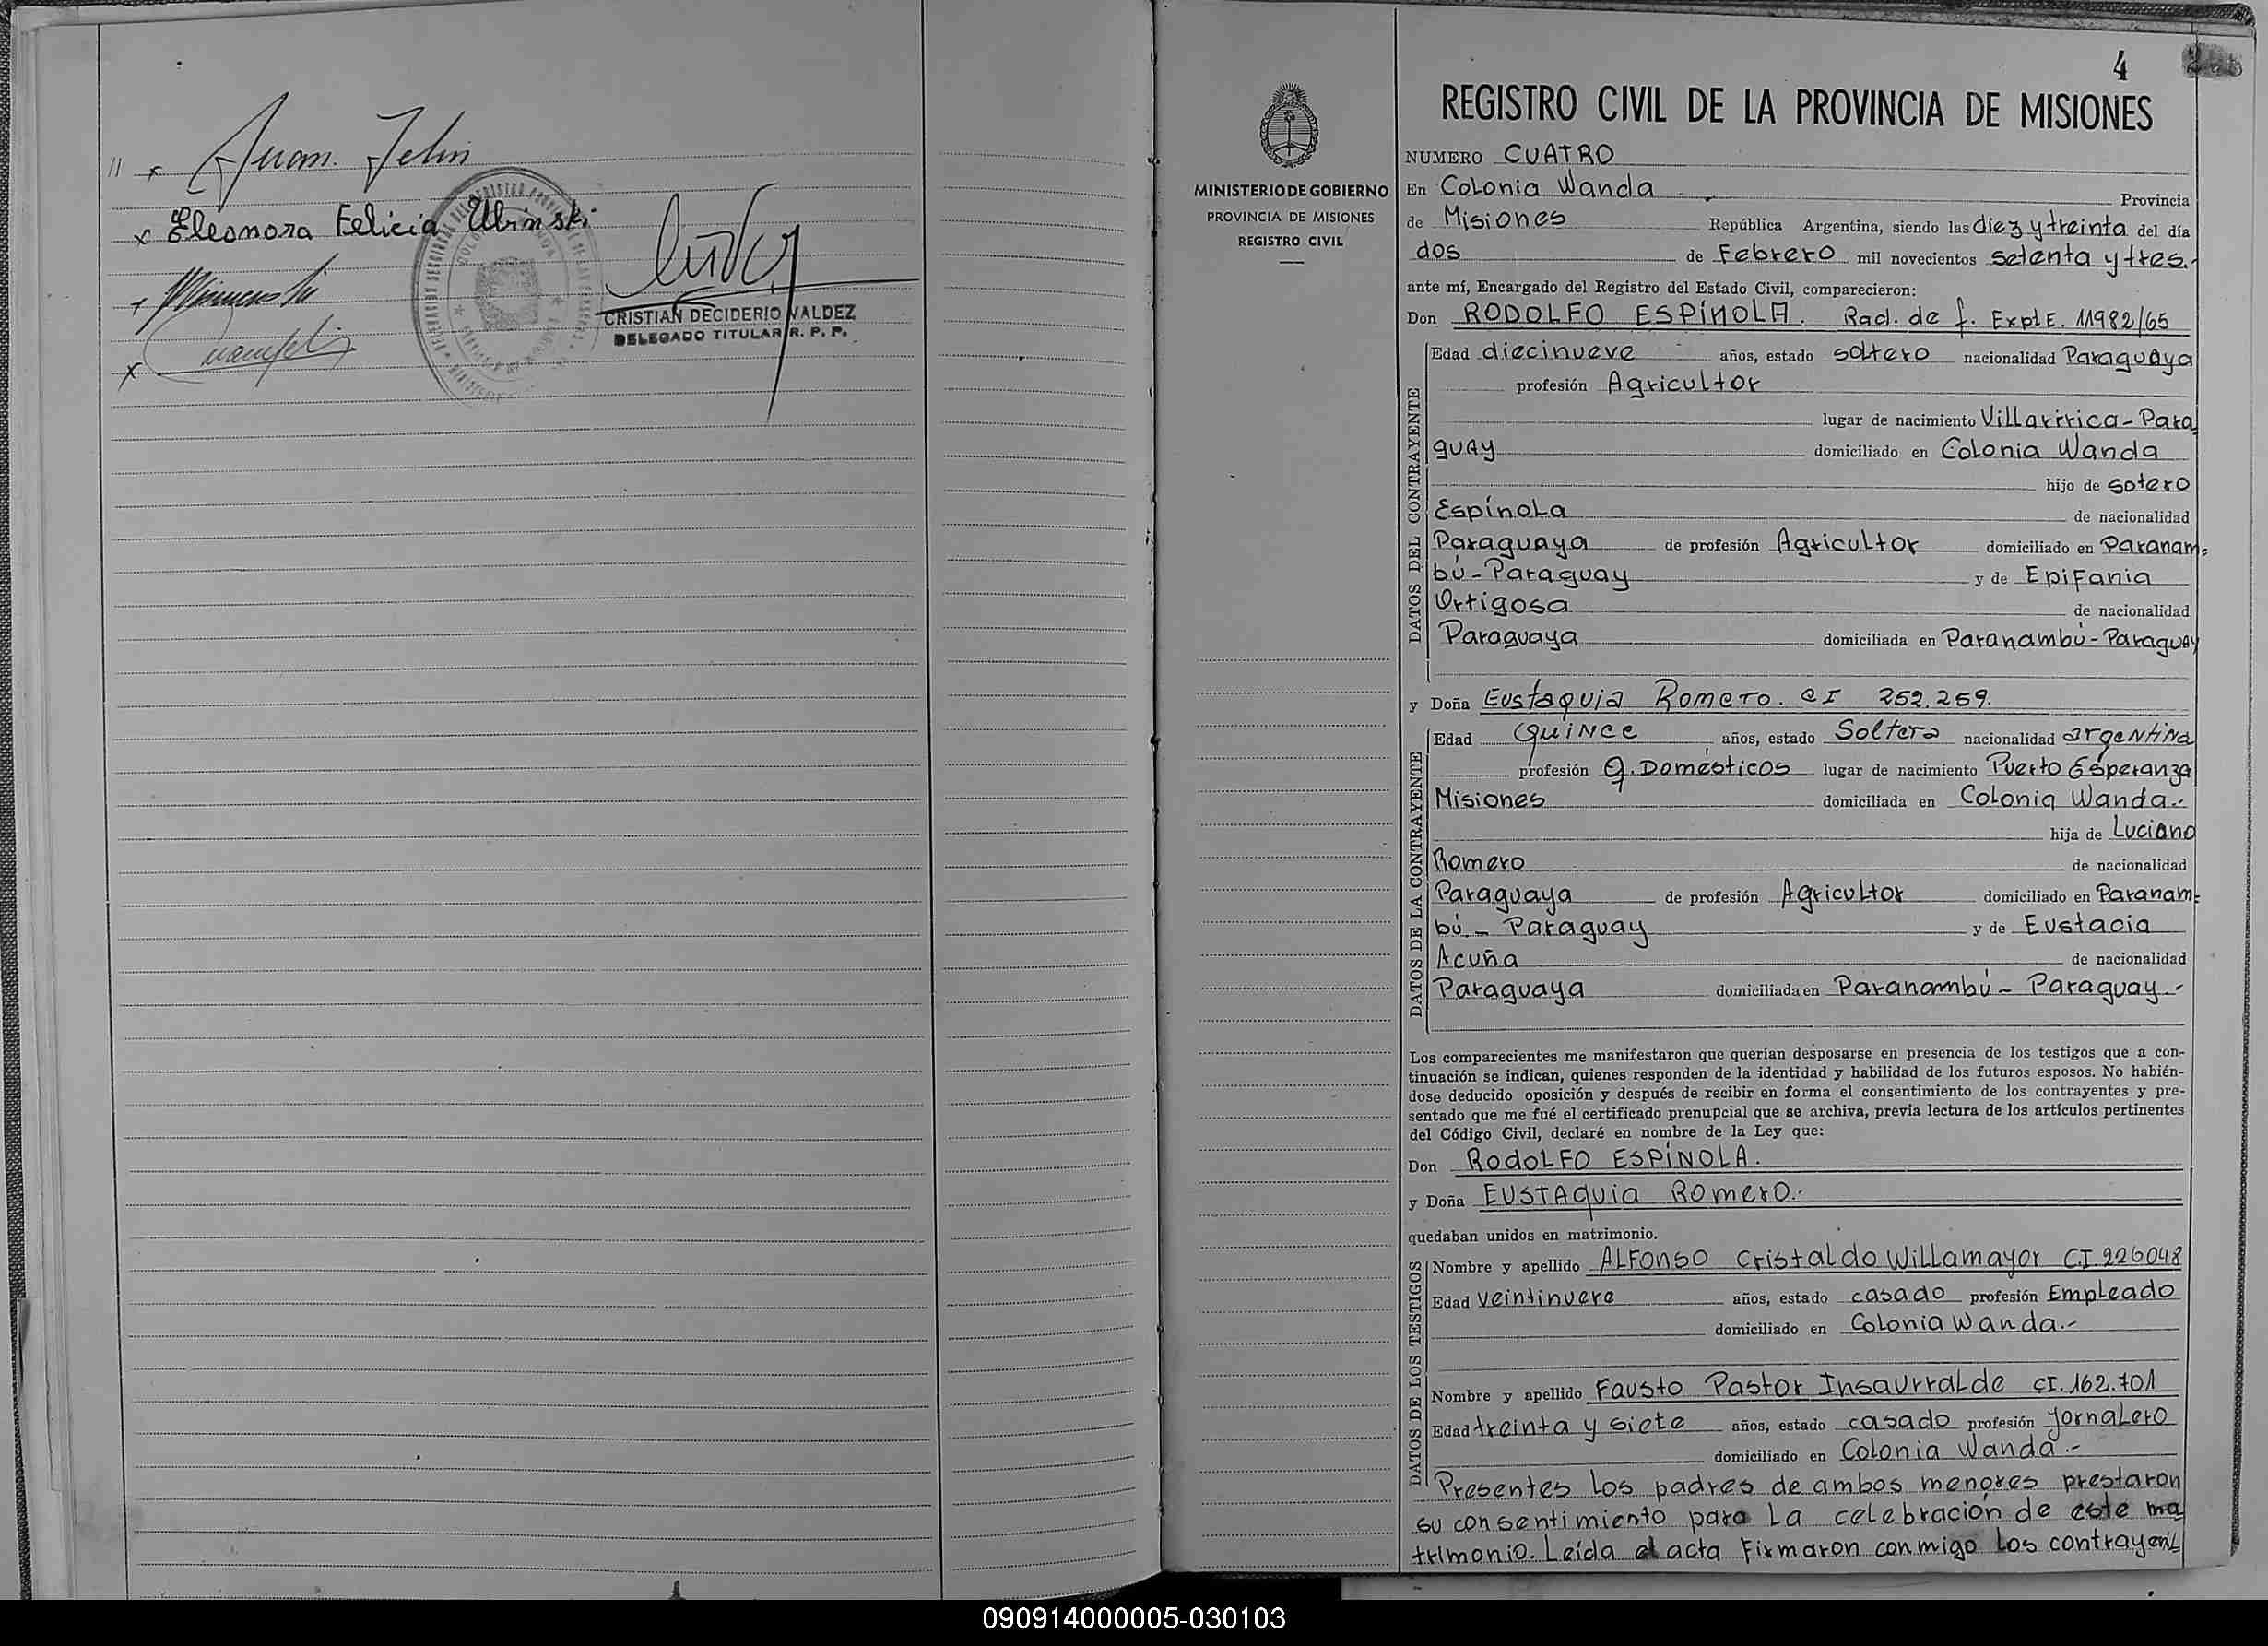 Juan
Eleonora Felicia Ulbinski
CRISTIAN DECIDERIO VALDEZ
DELEGADO TITULAR R. P. P.
4
REGISTRO CIVIL DE LA PROVINCIA DE MISIONES
MINISTERIO DE GOBIERNO
PROVINCIA DE MISIONES
REGISTRO CIVIL
NUMERO CUATRO
En Colonia Wanda Provincia
de Misiones República Argentina, siendo las diez y treinta del día
dos de Febrero mil novecientos setenta y tres.-
ante mí, Encargado del Registro del Estado Civil, comparecieron:
Don RODOLFO ESPÍNOLA. Rad. de f. Expte. 11982/65
DATOS DEL CONTRAYENTE
Edad diecinueve años, estado soltero nacionalidad Paraguaya
profesión Agricultor
lugar de nacimiento Villarrica - Para
guay domiciliado en Colonia Wanda
hijo de Sotero
Espínola de nacionalidad
Paraguaya de profesión Agricultor domiciliado en Paranam-
bú - Paraguay y de Epifania
Ortigosa de nacionalidad
Paraguaya domiciliada en Paranambú - Paraguay
y Doña Eustaquia Romero. CI 252.259.
DATOS DE LA CONTRAYENTE
Edad quince años, estado Soltera nacionalidad argentina
profesión Q. Domésticos lugar de nacimiento Puerto Esperanza
Misiones domiciliada en Colonia Wanda.-
hija de Luciano
Romero de nacionalidad
Paraguaya de profesión Agricultor domiciliado en Paranam-
bú - Paraguay y de Eustacia
Acuña de nacionalidad
Paraguaya domiciliada en Paranambú - Paraguay.-
Los comparecientes me manifestaron que querían desposarse en presencia de los testigos que a con-
tinuación se indican, quienes responden de la identidad y habilidad de los futuros esposos. No habién-
dose deducido oposición y después de recibir en forma el consentimiento de los contrayentes y pre-
sentado que me fué el certificado prenupcial que se archiva, previa lectura de los artículos pertinentes
del Código Civil, declaré en nombre de la Ley que:
Don RODOLFO ESPÍNOLA.
y Doña EUSTAQUIA ROMERO.-
quedaban unidos en matrimonio.
DATOS DE LOS TESTIGOS
Nombre y apellido ALFONSO Cristaldo Willamayor C.I. 226048
Edad veintinueve años, estado casado profesión Empleado
domiciliado en Colonia Wanda.-
Nombre y apellido Fausto Pastor Insaurralde CI. 162.701
Edad treinta y siete años, estado casado profesión Jornalero
domiciliado en Colonia Wanda.-
Presentes los padres de ambos menores prestaron
su consentimiento para la celebración de este ma
trimonio. Leída el acta Firmaron conmigo los contrayent
090914000005-030103